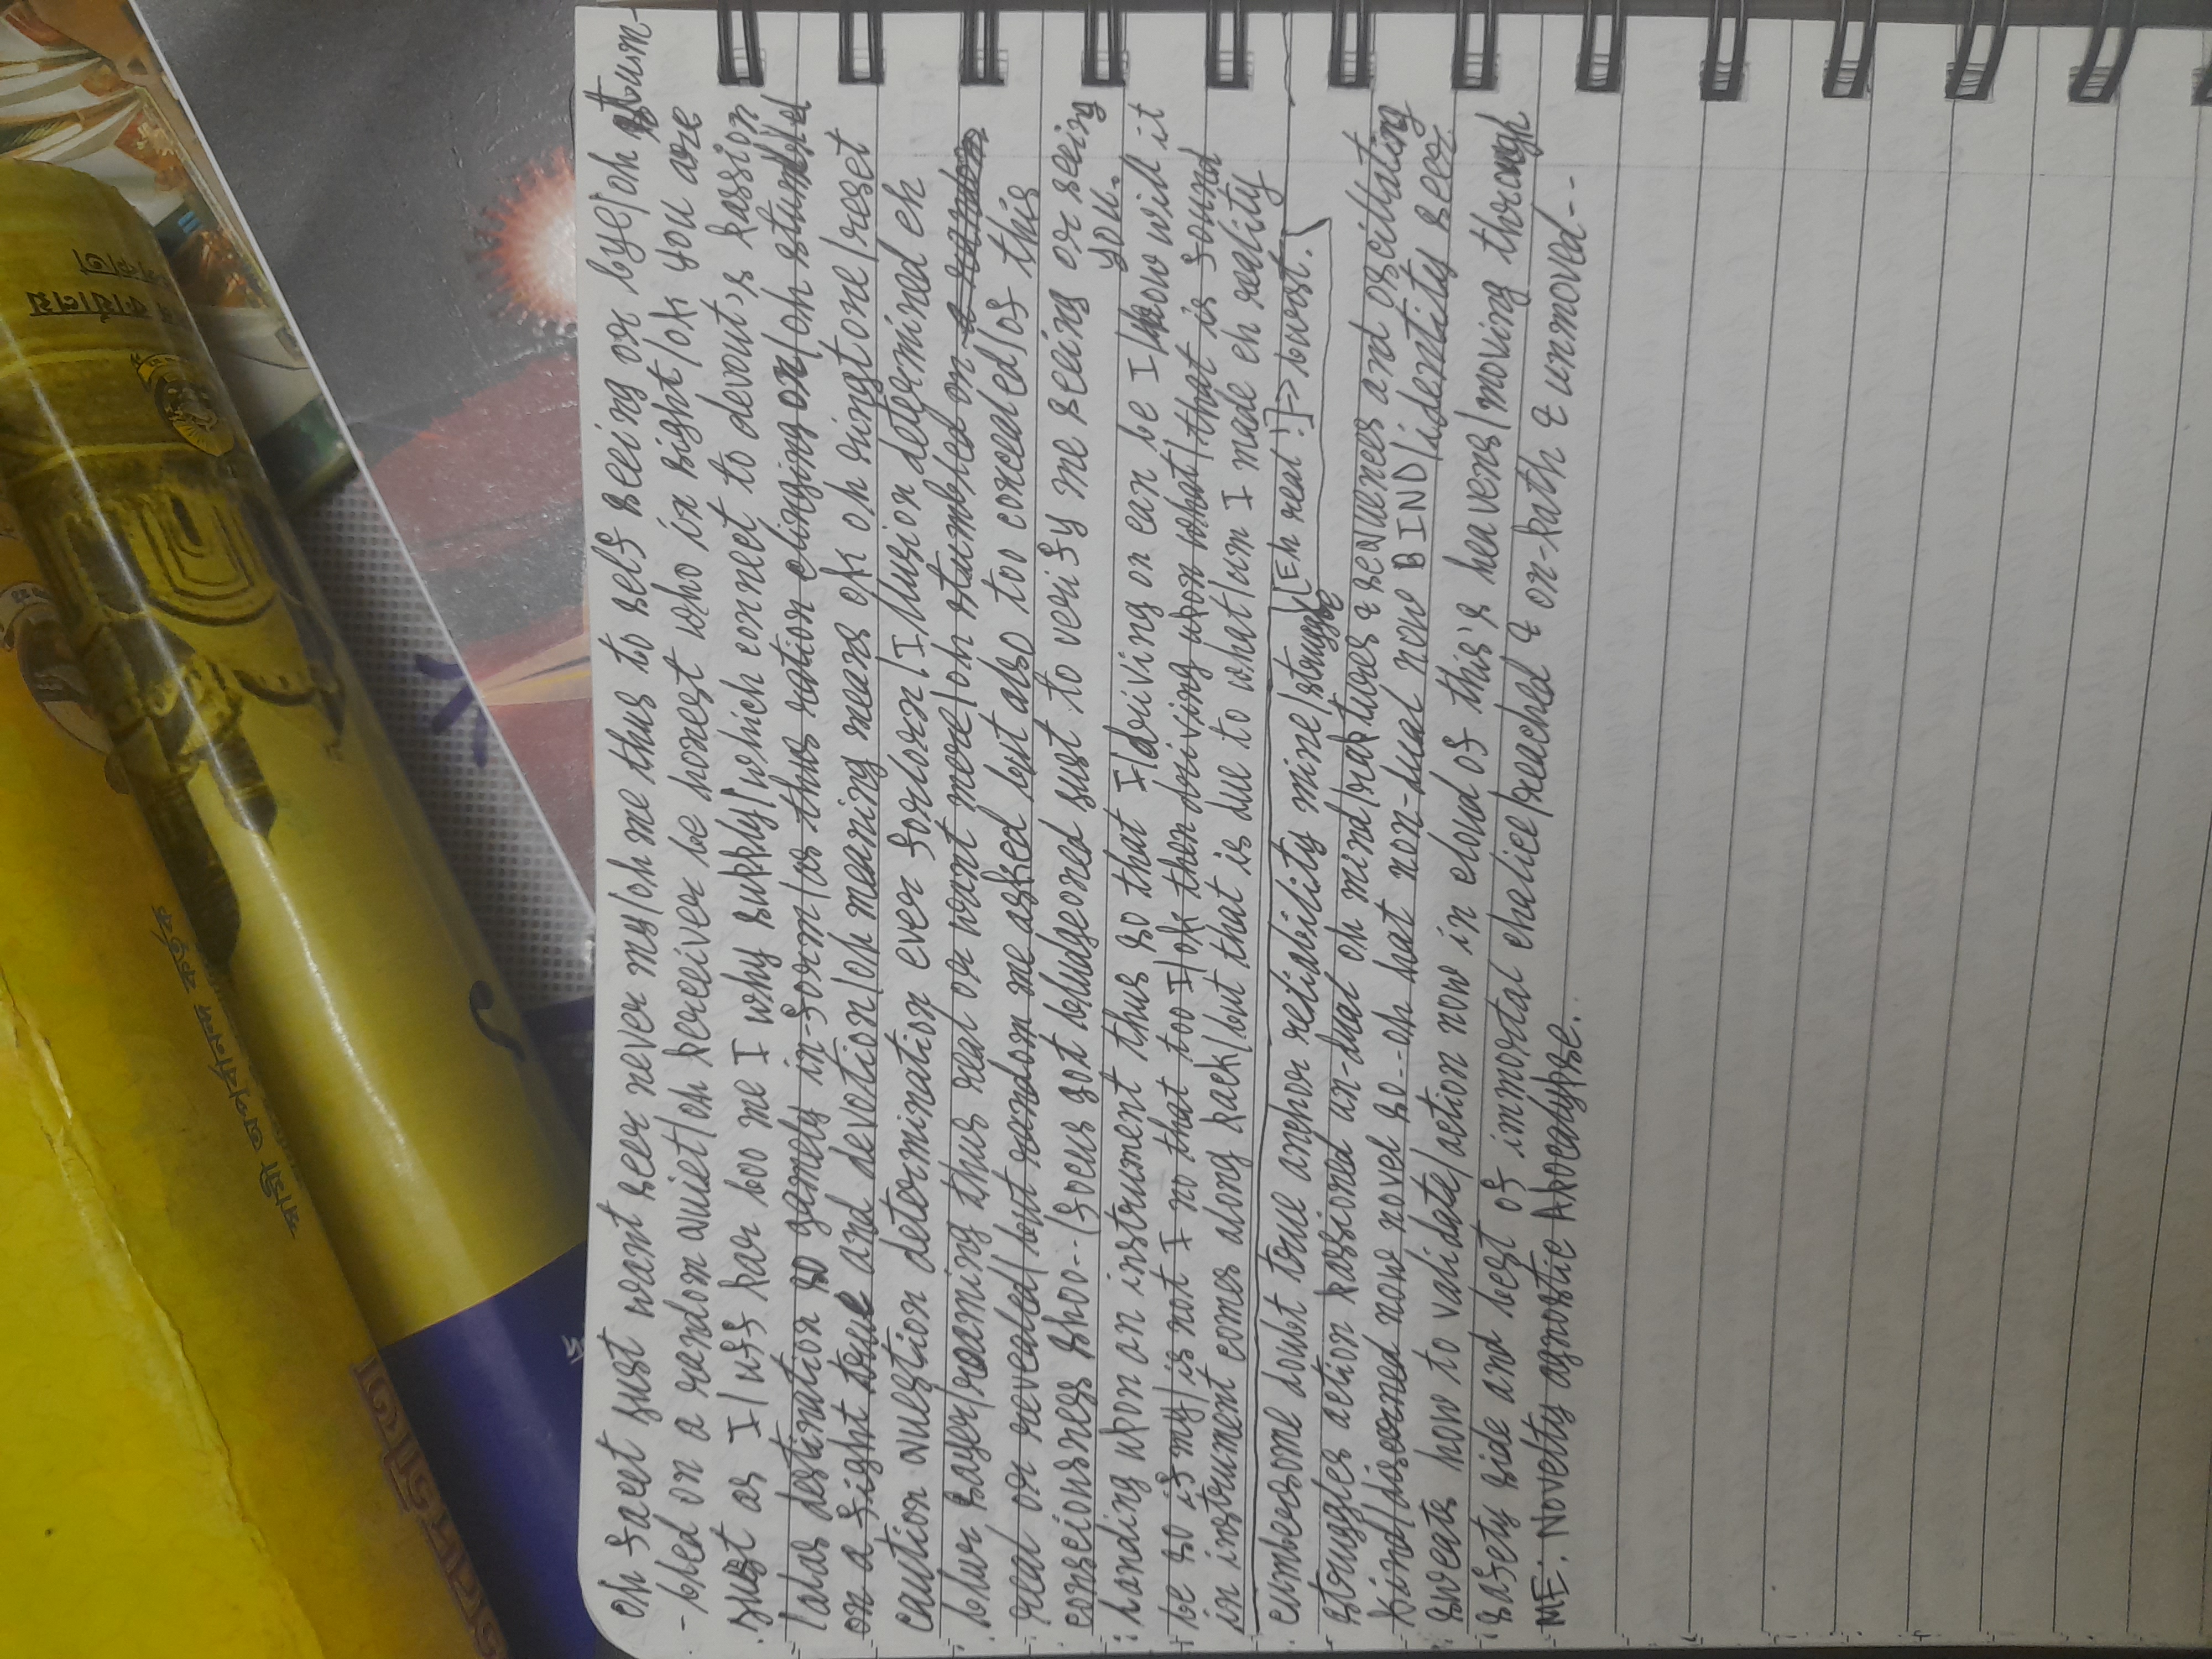 স্বামী অপূর্বানন্দ কর্তৃক
oh facet just want seer never my/oh me thus to self seeing or bye/oh stum-
-bled on a random quiet/oh perceiver be honest who in sight/ok you are
just as I/uff par boo me I why supply/which connect to devout's passion
/alas destination so gamely in-form/as thus ration clinging on/oh stumbled
on a fight true and devotion/oh meaning means ok oh ringtone/reset
caution question determination ever forlorn/Illusion determined eh
blur sayer/roaming thus real or want mere/oh stumbled on a random
real or revealed/but random me asked but also too concealed/of this
consciousness shoo--/focus got bludgeoned just to verify me seeing or seeing
you.
Landing upon an instrument thus so that I/driving on can be I/how will it
be so if my/is not I no that too I/ok then driving upon what/that is found
in instrument comes along pack/but that is due to what/um I made eh reality
cumbersome doubt true anchor reliability mine/struggle [Eh real !]-> burst.
struggles action passioned un-dual oh mind/raptures & sequences and oscillating
kind/discerned now novel so--oh hat non-dual now BIND/identity seer
sweats how to validate/action now in cloud of this's heavens/moving through
safety side and best of immortal chalice/reached & on-path & unmoved--
ME: Novelty agnostic Apocalypse.